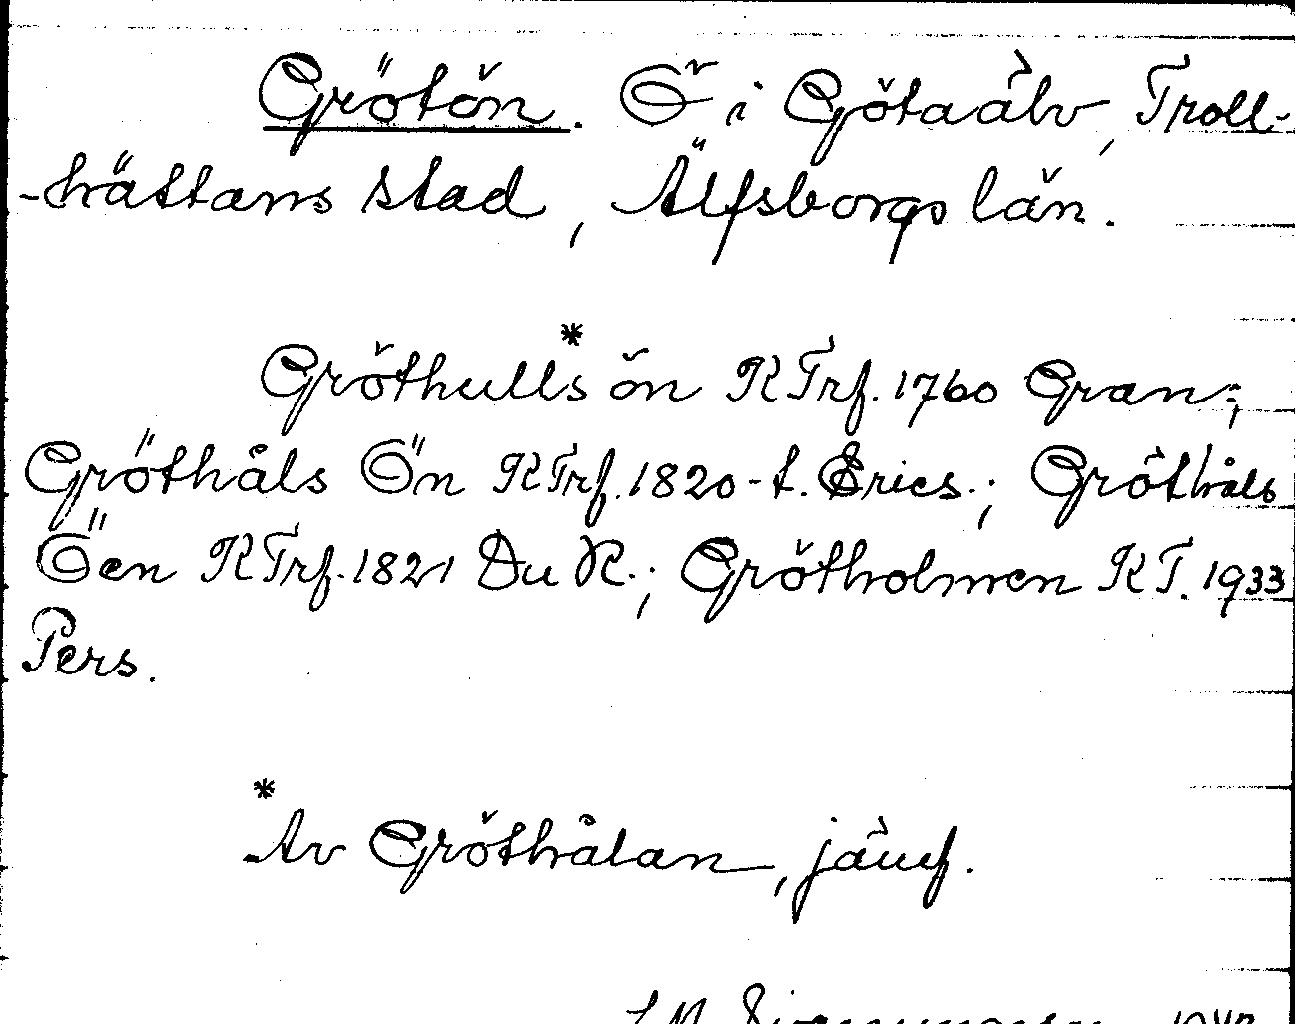 Grötön. Ö i Götaälv, Troll-
-hättans stad, Älfsborgs län.
Gröthulls* ön KTrf. 1760 Gran.;
Gröthåls Ön KTrf. 1820-t. Erics.; Gröthåls
Öen KTrf. 1821 Du R.; Grötholmen KT. 1933
Pers.
*Av Gröthålan, jämf.